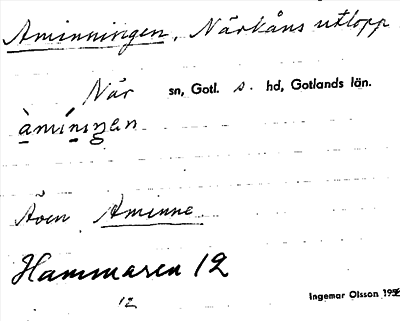 Åminningen, Närkåns utlopp
När sn, Gotl. s. hd, Gotlands län.
àmíniŋen
Även Åminne
Hammaren 12
12
Ingemar Olsson 1956